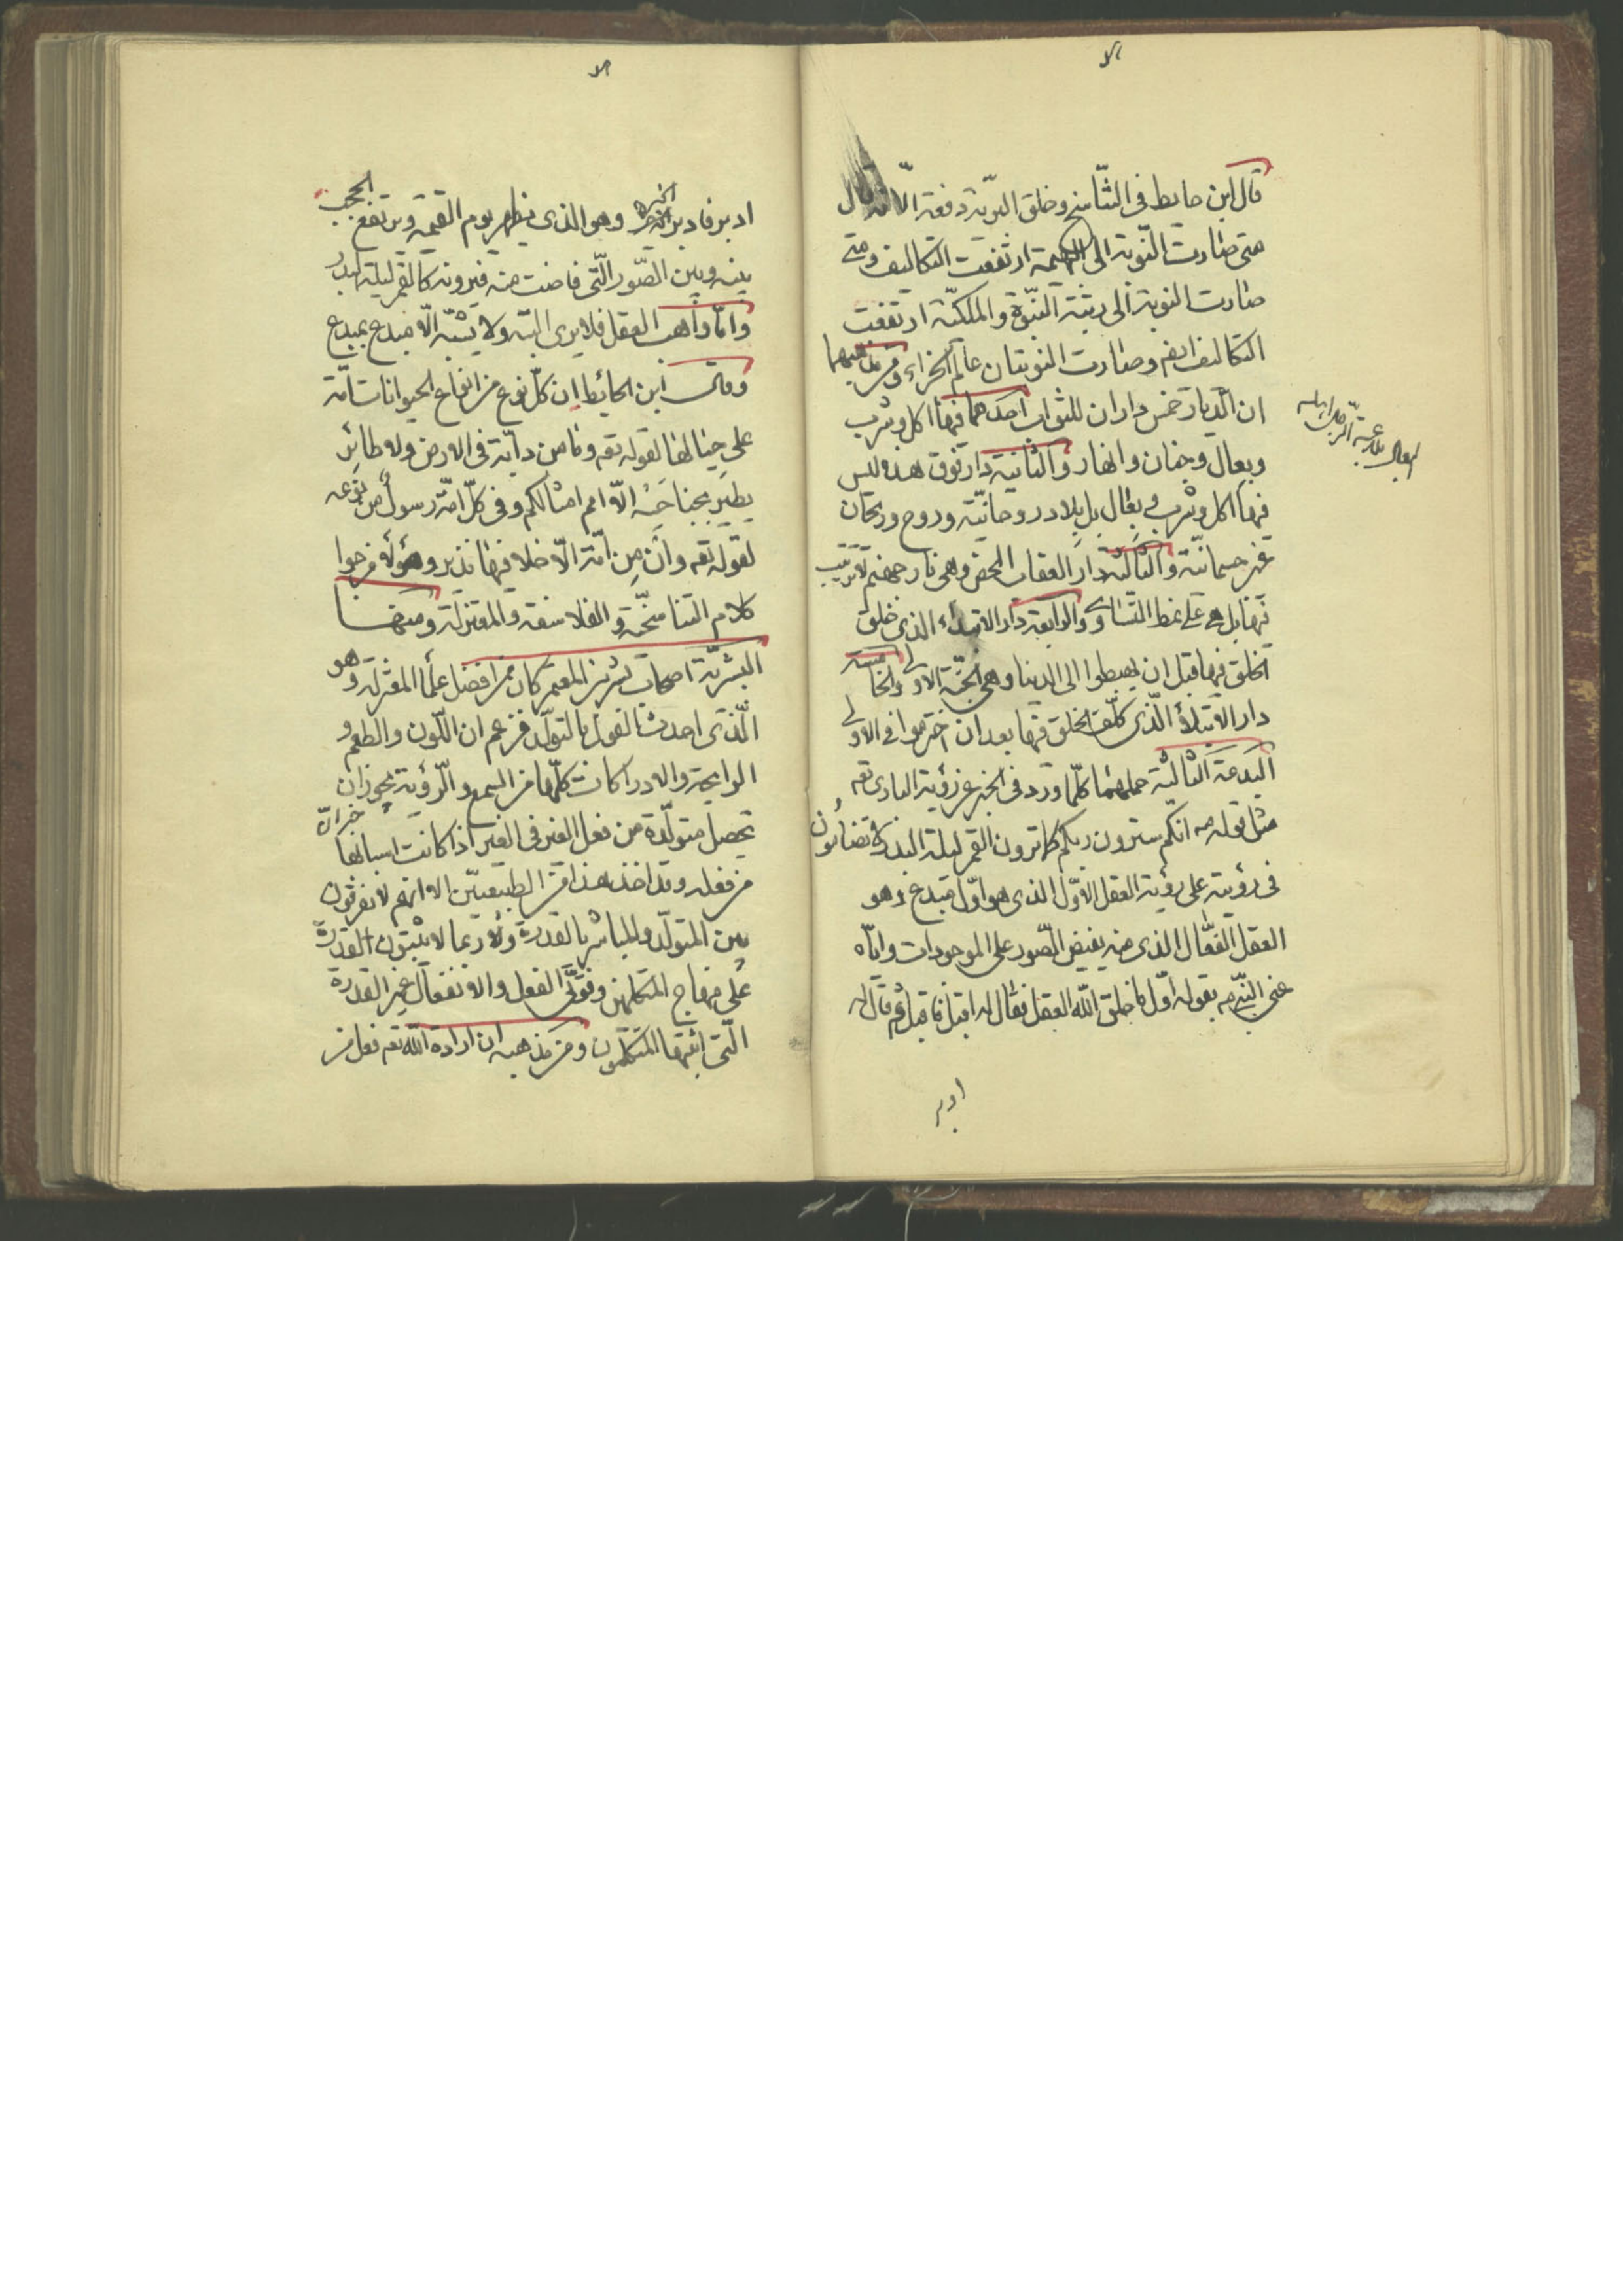 قال ابن حايط فى التناسخ وخلق البرية دفعة الا انه قال
متى صارت النوبة الى البهيمة ارتفعت التكاليف ومتى
صارت النوبة الى رتبة النبوة والملكية ارتفعت
التكاليف ايضم وصارت النوبتان عالم الجزاء ومن مذهبهما
ان الديار خمس داران للثواب احدهما فيها اكل وشرب
وبعال وجنان وانهار والثانية دار فوق هذه ليس
فيها اكل وشرب وبعال بل بلاد روحانية وروح وريحان
غير جسمانية والثالثة دار العقاب المحض وهى نار جهنم لا ترتيب
فيها بل هى على نمط التساوى والرابعة دار الابتداء الذى خلق
الخلق فيها قبل ان يهبطوا الى الدنيا وهى الجنة الاولى والخامسة
دار الابتلاء الذى كلف الخلق فيها بعد ان اخترموا فى الاولى
البدعة الثالثة حملهما كلما ورد فى الخبر عن رؤية البارى تعه
مثل قوله صه انكم سترون ربكم كما ترون القمر ليلة البدر لا تضامون
فى رؤيته على رؤية العقل الاول الذى هو اول مبدع وهو
العقل الفعال الذى منه يفيض الصور على الموجودات واياه
عنى النبى صه بقوله اول ما خلق الله العقل فقال له اقبل فاقبل ثم قال له
ادبر
البعال ملاعبة الرجل اهله
ادبر فادبر الخبره وهو الذى يظهر يوم القيمة ويرتفع الحجب
بينه وبين الصور التى فاضت منه فيرونه كالقمر ليلة البدر
واما واهب العقل فلا يرى البتة ولا يشبه الا مبدع بمبدع
وقال ابن الحائط ان كل نوع من انواع الحيوانات امة
على حيالها لقوله تعه وما من دابة فى الارض ولا طائر
يطير بجناحيه الا امم امثالكم وفى كل امة رسول من نوعه
لقوله تعه وان من امة الا خلا فيها نذير وهؤلاء مزجوا
كلام التناسخية والفلاسفة والمعتزلة ومنها
البشرية اصحاب بشر بن المعتمر كان من افضل علما المعتزلة وهو
الذى احدث القول بالتولد فزعم ان اللون والطعم و
الرايحة والادراكات كلها من السمع والرؤية يجوز ان
تحصل متولدة من فعل الغير فى الغير اذا كانت اسبابها
من فعله وقد اخذ هذا من الطبيعيين الا انهم لا يفرقون
بين المتولد والمباشر بالقدرة ولا ربما لا يثبتون القدرة
على منهاج المتكلمين وقوى الفعل والانفعال غير القدرة
التى اثبتها المتكلمون ومن مذهبه ان ارادة الله تعه فعل من